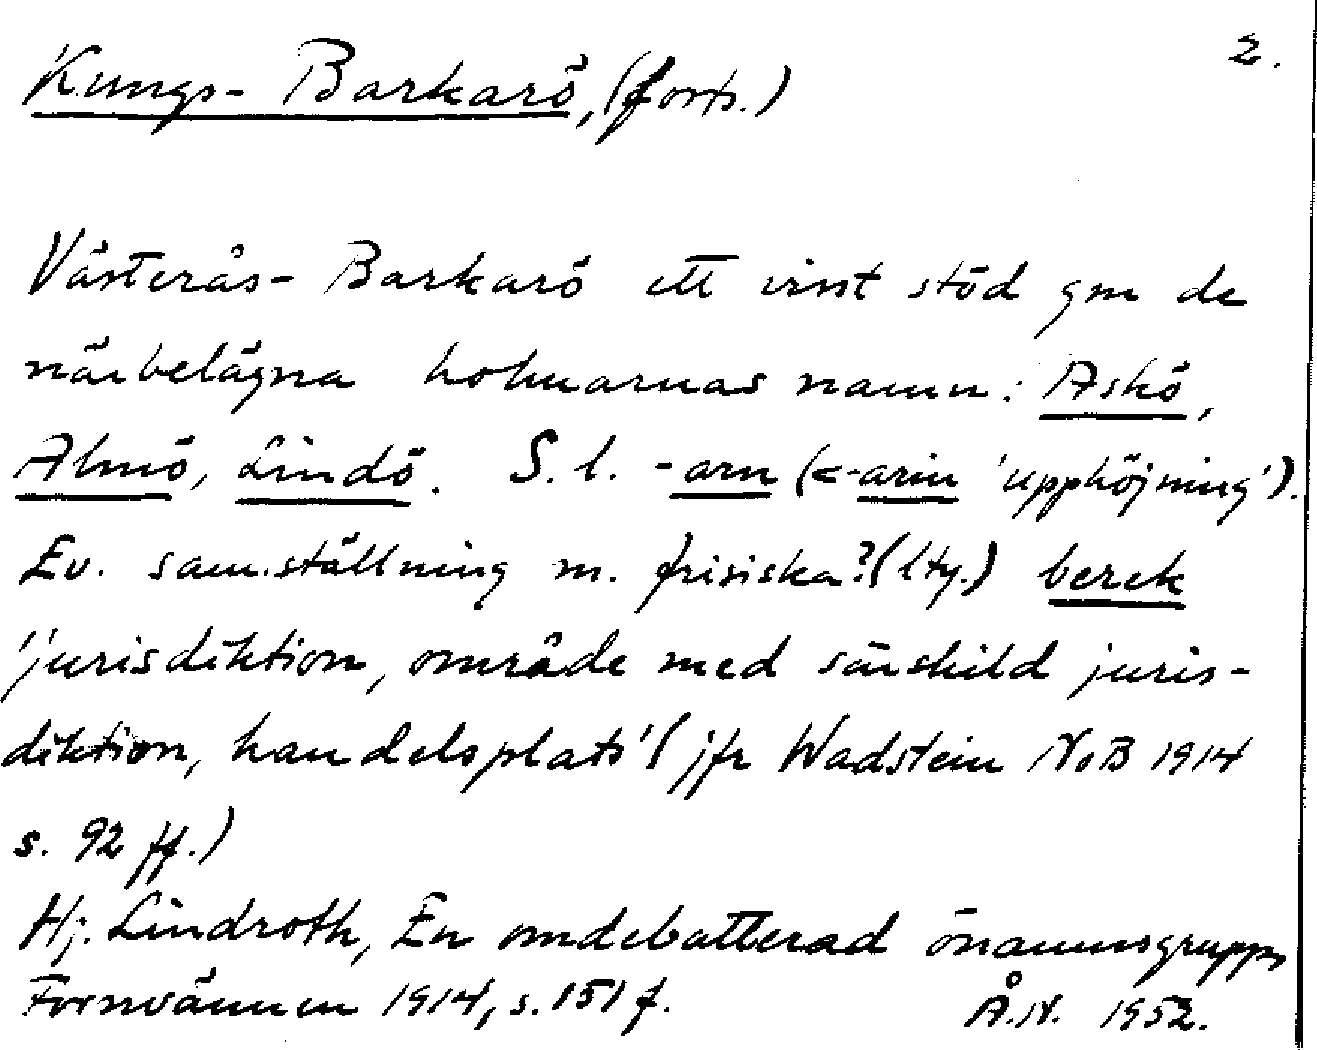 2.
Kungs-Barkarö, (forts.)
Västerås-Barkarö ett visst stöd gm de
närbelägna holmarnas namn: Askö,
Almö, Lindö. S.l. -arn (<-arin 'upphöjning').
Ev. sam.ställning m. frisiska? (lty.) berek
'jurisdiktion, område med särskild juris-
diktion, handelsplats' (jfr Wadstein NoB 1914
s. 92 ff.)
Hj. Lindroth, En omdebatterad önamnsgrupp,
Fornvännen 1914, s. 151 f. Å.N. 1952.